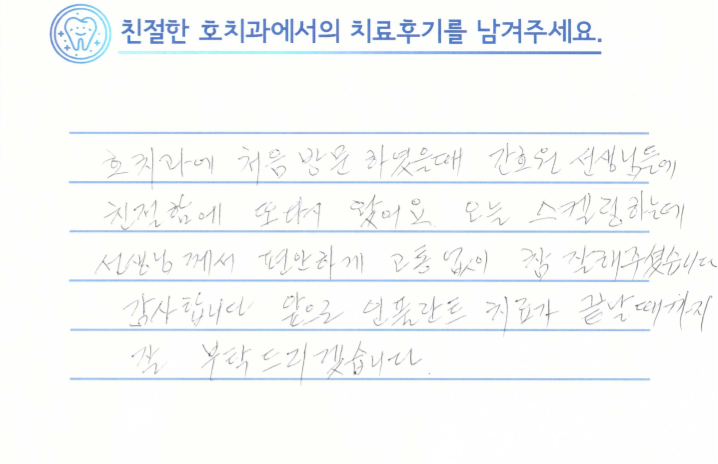 친절한 호치과에서의 치료후기를 남겨주세요.
호치과에 처음 방문 하였을때 간호원 선생님들에
친절함에 또다시 왔어요 오늘 스켈링하는데
선생님께서 편안하게 고통없이 참 잘해주셨습니다
감사합니다 앞으로 인플란트 치료가 끝날때까지
잘 부탁드리겠습니다.